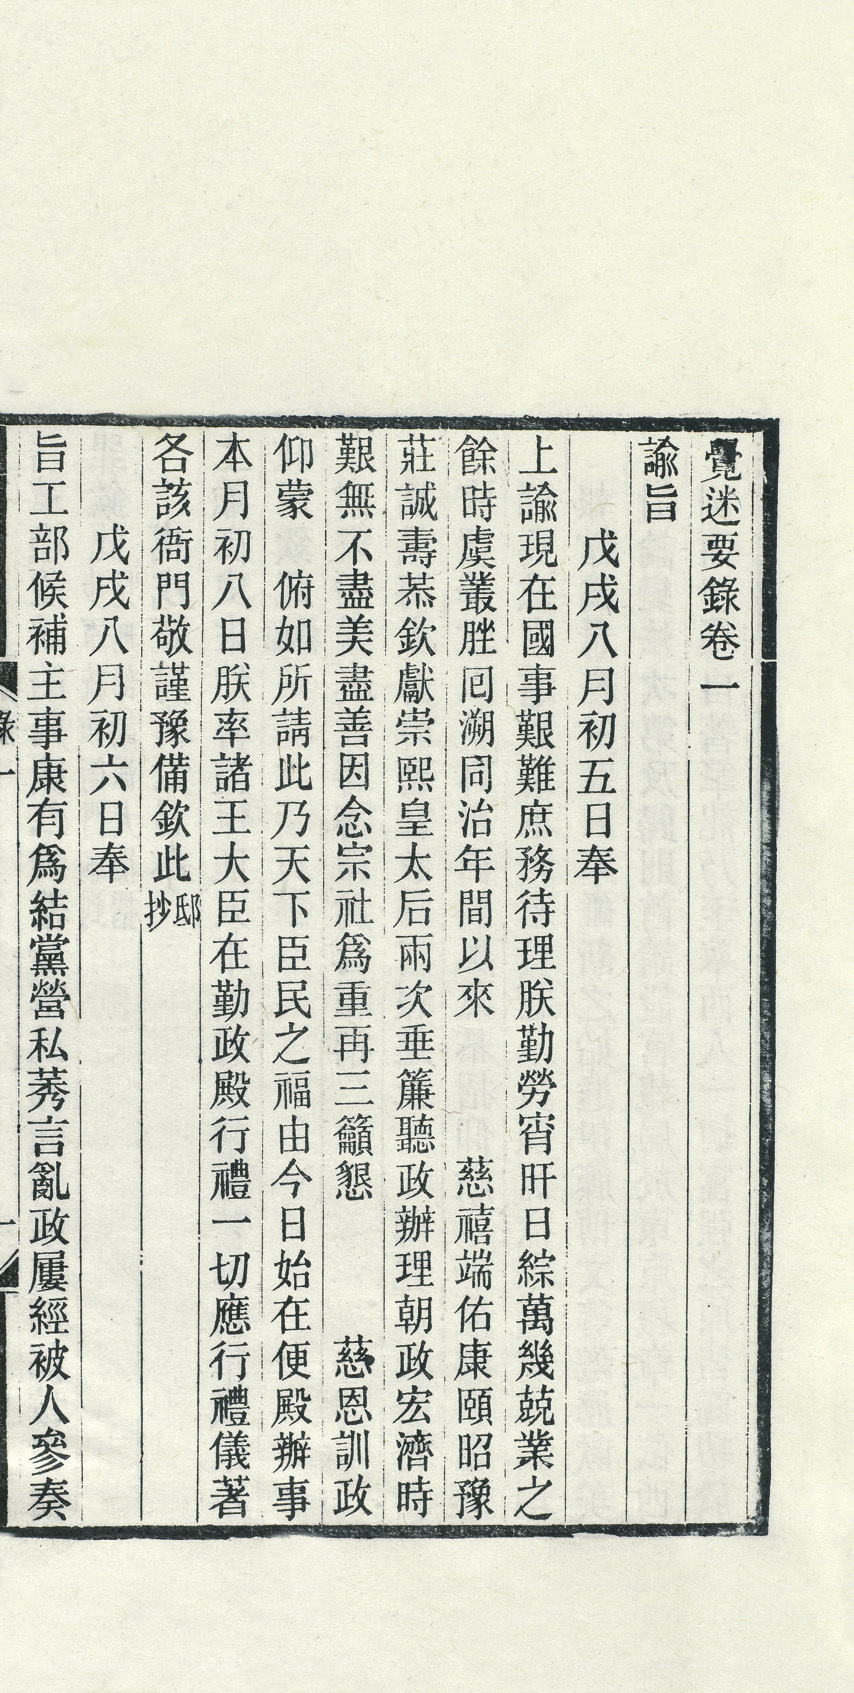 覺迷要錄卷一
諭旨
戊戌八月初五日奉
上諭現在國事艱難庶務待理朕勤勞宵旰日綜萬幾兢業之
餘時虞叢脞囘溯同治年間以來　慈禧端佑康頤昭豫
莊誠壽恭欽獻崇熙皇太后兩次垂簾聽政辦理朝政宏濟時
艱無不盡美盡善因念宗社爲重再三籲懇　慈恩訓政
仰蒙　俯如所請此乃天下臣民之福由今日始在便殿辦事
本月初八日朕率諸王大臣在勤政殿行禮一切應行禮儀著
各該衙門敬謹豫備欽此邸抄
戊戌八月初六日奉
旨工部候補主事康有爲結黨營私莠言亂政屢經被人參奏
錄一
一